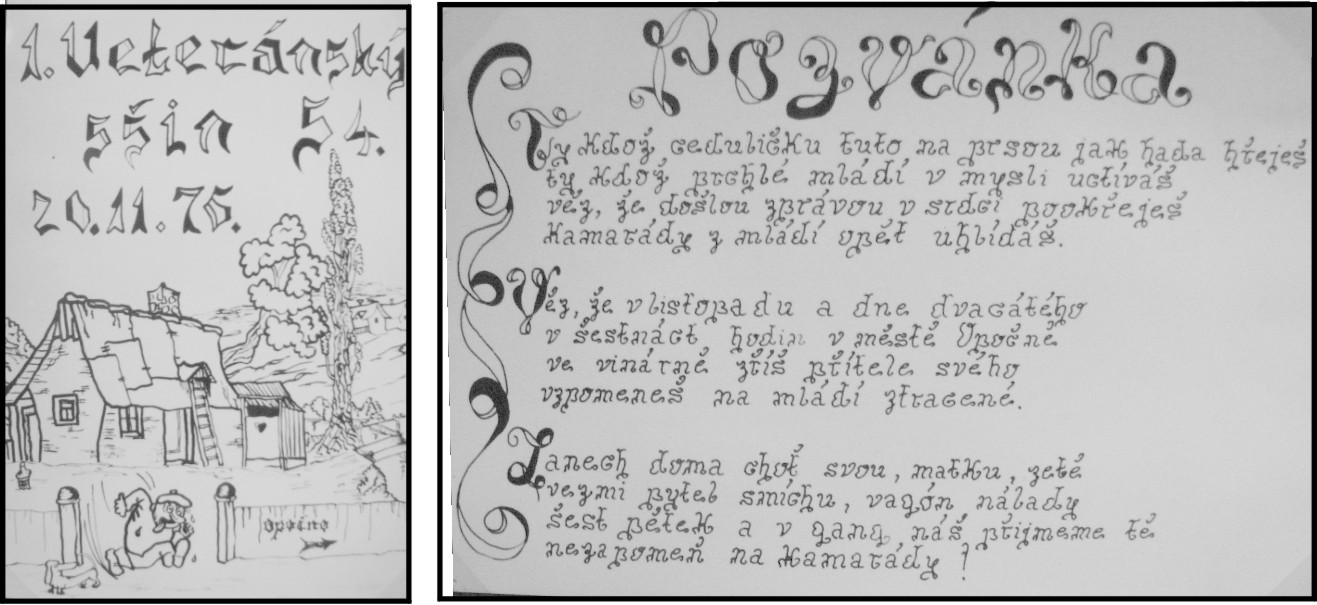 1. Veteránský
sšin 54.
20.11.76.
opočno
Pozvánka
Ty kdož ceduličku tuto na prsou jak hada hřeješ
ty kdož prchlé mládí v mysli uctíváš
věz, že došlou zprávou v srdci pookřeješ
kamarády z mládí opět uhlídáš.
Věz, že v listopadu a dne dvacátého
v šestnáct hodin v městě Opočně
ve vinárně zříš přítele svého
vzpomeneš na mládí ztracené.
Zanech doma choť svou, matku, zetě
vezmi pytel smíchu, vagón nálady
šest pětek a v gang náš přijmeme tě
nezapomeň na kamarády!